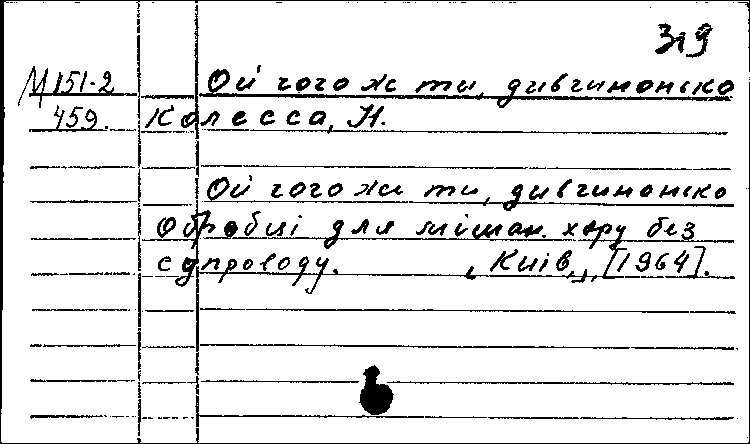 319
М 151-2 Ой чого ж ти, дивчинонько
459. Колесса, Н.
Ой чого жи ти, дивчинонько
Обробці для мішан. хору без
супроводу. "Київ", [1964].